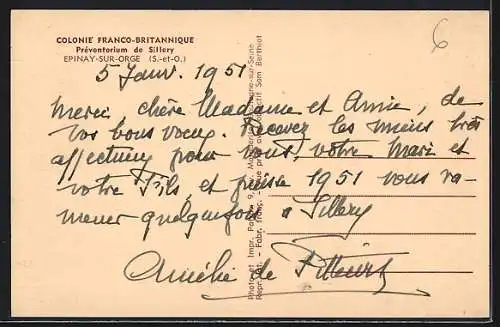 COLONIE FRANCO-BRITANNIQUE
Préventorium de Sillery
EPINAY-SUR-ORGE (S.-et-O.)
6
5 Janv. 1951
Merci, chère Madame et Amie, de
vos bons voeux. Recevez les miens très
affectueux pour vous, votre Mari et
votre Fils, et puisse 1951 vous ra-
mener quelquefois à Sillery
Amélie de